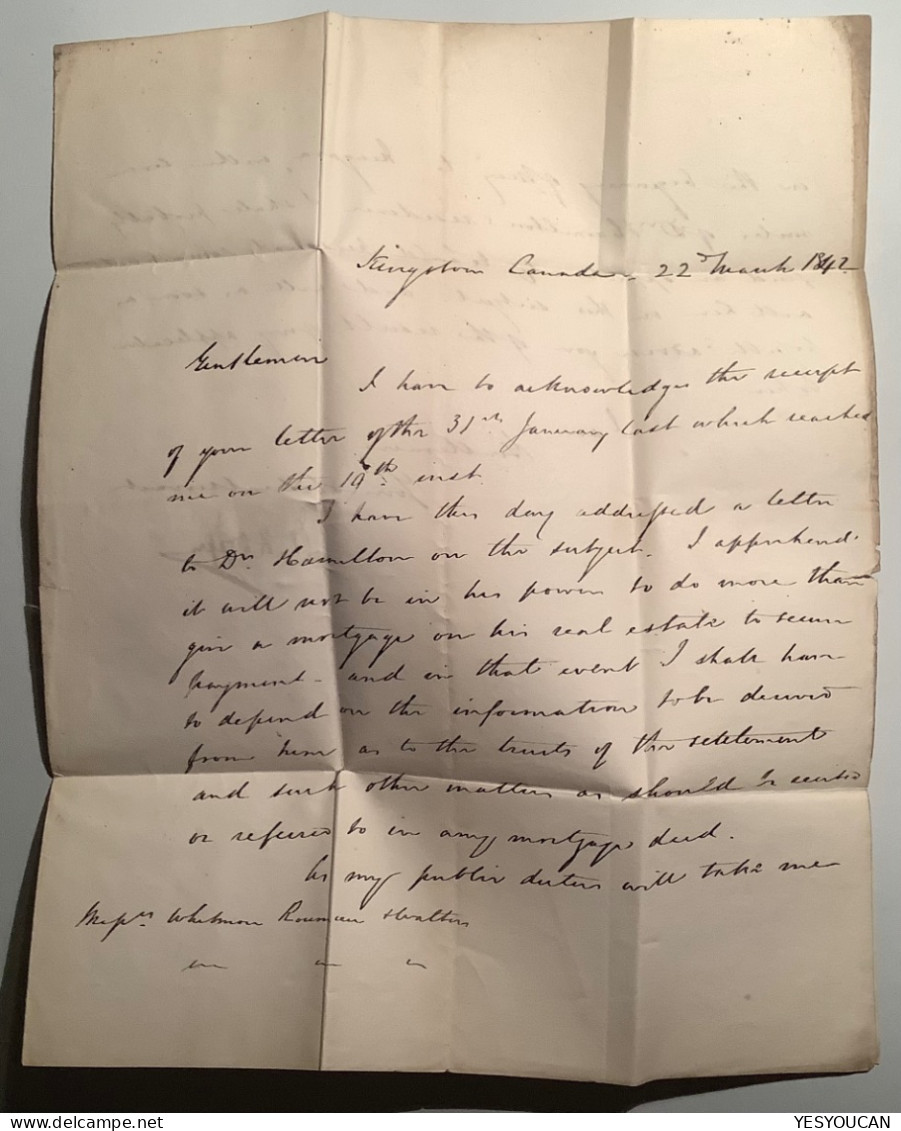 Kingston Canada 22d March 1842
Gentlemen
I have to acknowledge the receipt
of your letter of the 31st January last which reached
me on the 19th inst.
I have this day addressed a letter
to Dr Hamilton on the subject. I apprehend
it will not be in his power to do more than
give a mortgage on his real estate to secure
payment - and in that event I shall have
to depend on the information to be derived
from him as to the trusts of the settlement
and such other matters as should be recited
or referred to in any mortgage deed.
As my public duties will take me
Messrs Whitmore Walters
YESYOUCAN